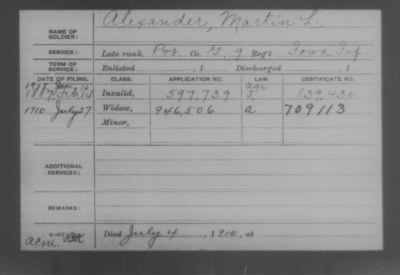 Alexander, Martin L.
NAME OF SOLDIER:
SERVICE: Late rank, Pvt. Co. G, 9 Reg't Iowa Inf.
TERM OF SERVICE: Enlisted , 1 Discharged , 1
DATE OF FILING. CLASS. APPLICATION NO. LAW. CERTIFICATE NO.
age
Invalid, 597,739 839,430
1910 July 27 Widow, 946,506 a 709113
Minor,
ADDITIONAL SERVICES:
REMARKS:
Died July 4, 1910, at
acm